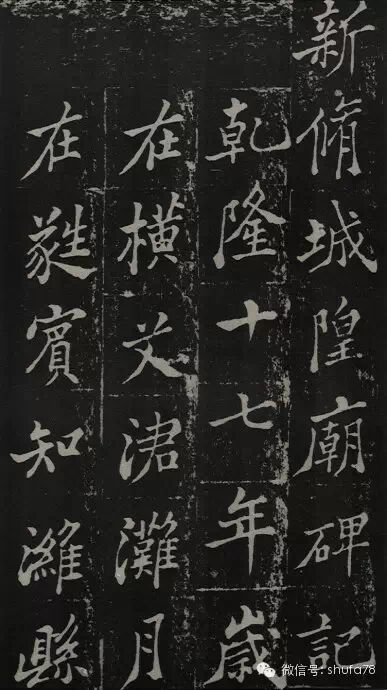 新脩城隍廟碑記
乾隆十七年歲
在橫艾涒灘月
在蕤賓知濰縣
微信号: shufa78